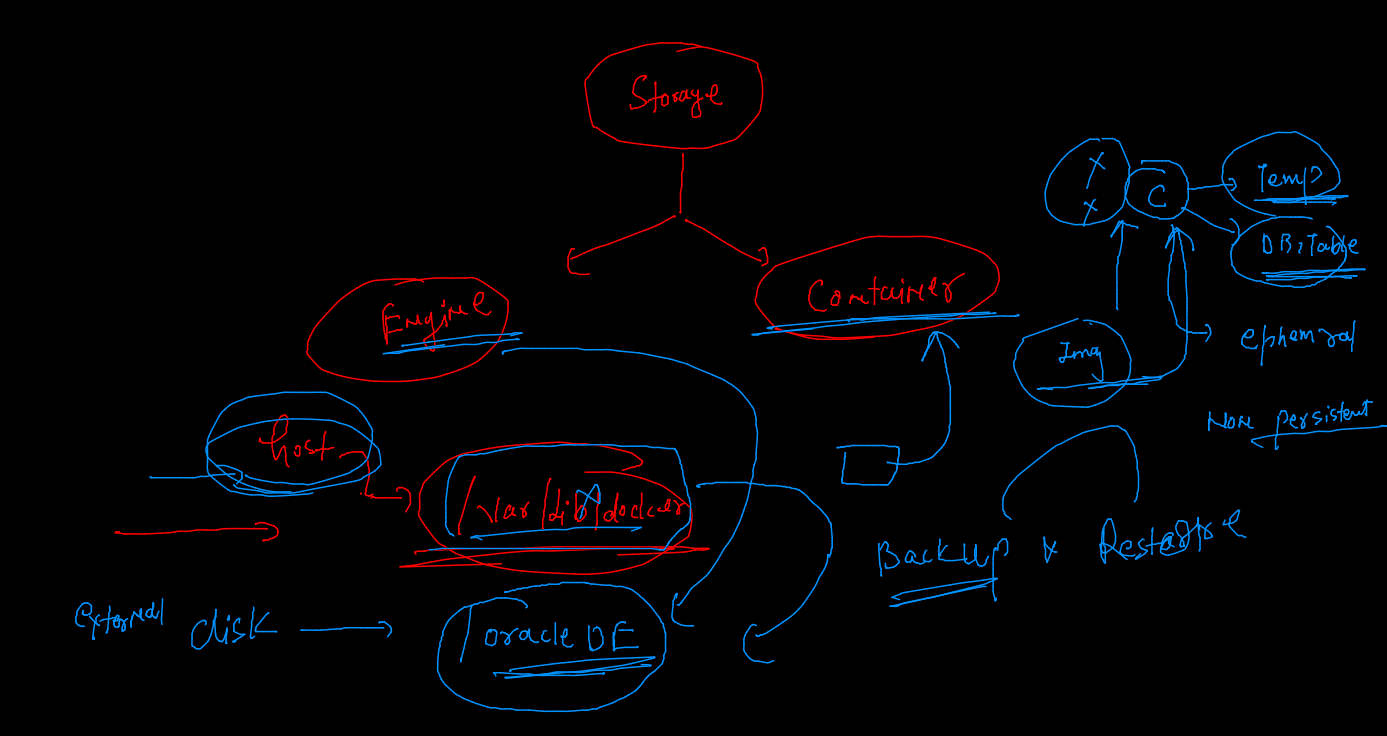 Storage
Engine
Container
host
/var/lib/docker
external disk
/oracle DE
X
X
C
Temp
DB, Table
Imag
ephemral
Non persistent
Backup & Restore